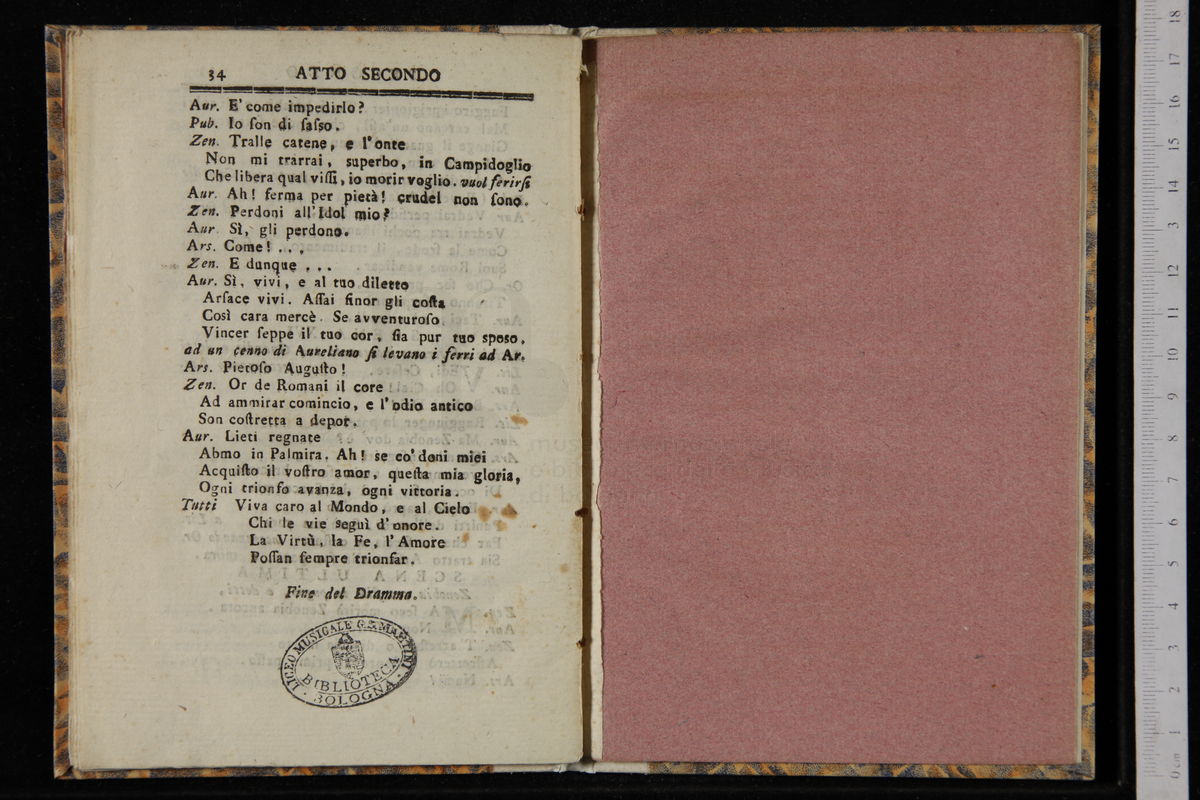 34 ATTO SECONDO
Aur. E' come impedirlo?
Pub. Io ſon di ſaſso.
Zen. Tralle catene, e l'onte
Non mi trarrai, superbo, in Campidoglio
Che libera qual viſſi, io morir voglio. vuol ferirſi
Aur. Ah! ferma per pietà! crudel non ſono.
Zen. Perdoni all'Idol mio?
Aur. Sì, gli perdono.
Ars. Come! . . .
Zen. E dunque . . .
Aur. Sì, vivi, e al tuo diletto
Arſace vivi. Aſſai finor gli coſta
Così cara mercè. Se avventuroſo
Vincer ſeppe il tuo cor, ſia pur tuo sposo.
ad un cenno di Aureliano ſi levano i ferri ad Ar.
Ars. Pietoſo Auguſto!
Zen. Or de Romani il core
Ad ammirar comincio, e l'odio antico
Son coſtretta a depor.
Aur. Lieti regnate
Abmo in Palmira. Ah! se co' doni miei
Acquiſto il voſtro amor, queſta mia gloria,
Ogni trionfo avanza, ogni vittoria.
Tutti Viva caro al Mondo, e al Cielo
Chi le vie seguì d'onore.
La Virtù, la Fe, l'Amore
Poſſan ſempre trionfar.
Fine del Dramma.
LICEO MUSICALE G.B. MARTINI
BIBLIOTECA
BOLOGNA